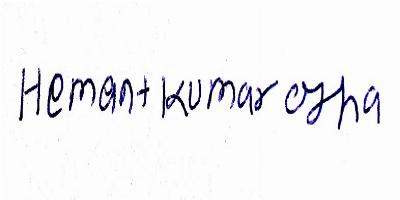 Hemant Kumar Ojha